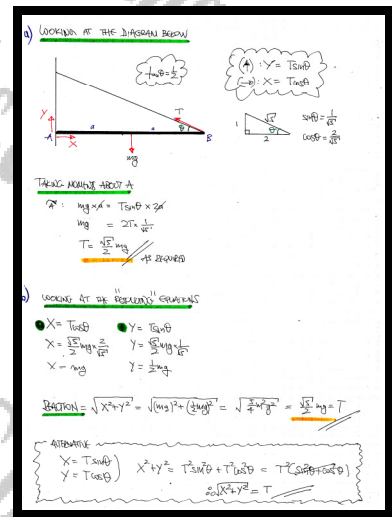 a) LOOKING AT THE DIAGRAM BELOW
tanθ = 1/2
(↑): Y = Tsinθ
(→): X = Tcosθ
Y
T
a
a
θ
A
X
B
mg
1
√5
θ
2
sinθ = 1/√5
cosθ = 2/√5
TAKING MOMENTS ABOUT A
A: mg × a = Tsinθ × 2a
mg = 2T × 1/√5
T = √5/2 mg
AS REQUIRED
b) LOOKING AT THE "RESOLVING" EQUATIONS
X = Tcosθ
Y = Tsinθ
X = √5/2 mg × 2/√5
Y = √5/2 mg × 1/√5
X = mg
Y = 1/2 mg
REACTION = √(X²+Y²) = √((mg)²+(1/2mg)²) = √(5/4 m²g²) = √5/2 mg = T
ALTERNATIVE
X = Tsinθ
Y = Tcosθ
X²+Y² = T²sin²θ + T²cos²θ = T²(sin²θ+cos²θ)
∴ √(X²+Y²) = T